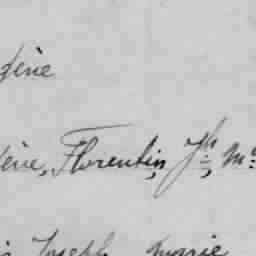 gène
gène, Florentin, Jh, Mie
Joseph marie